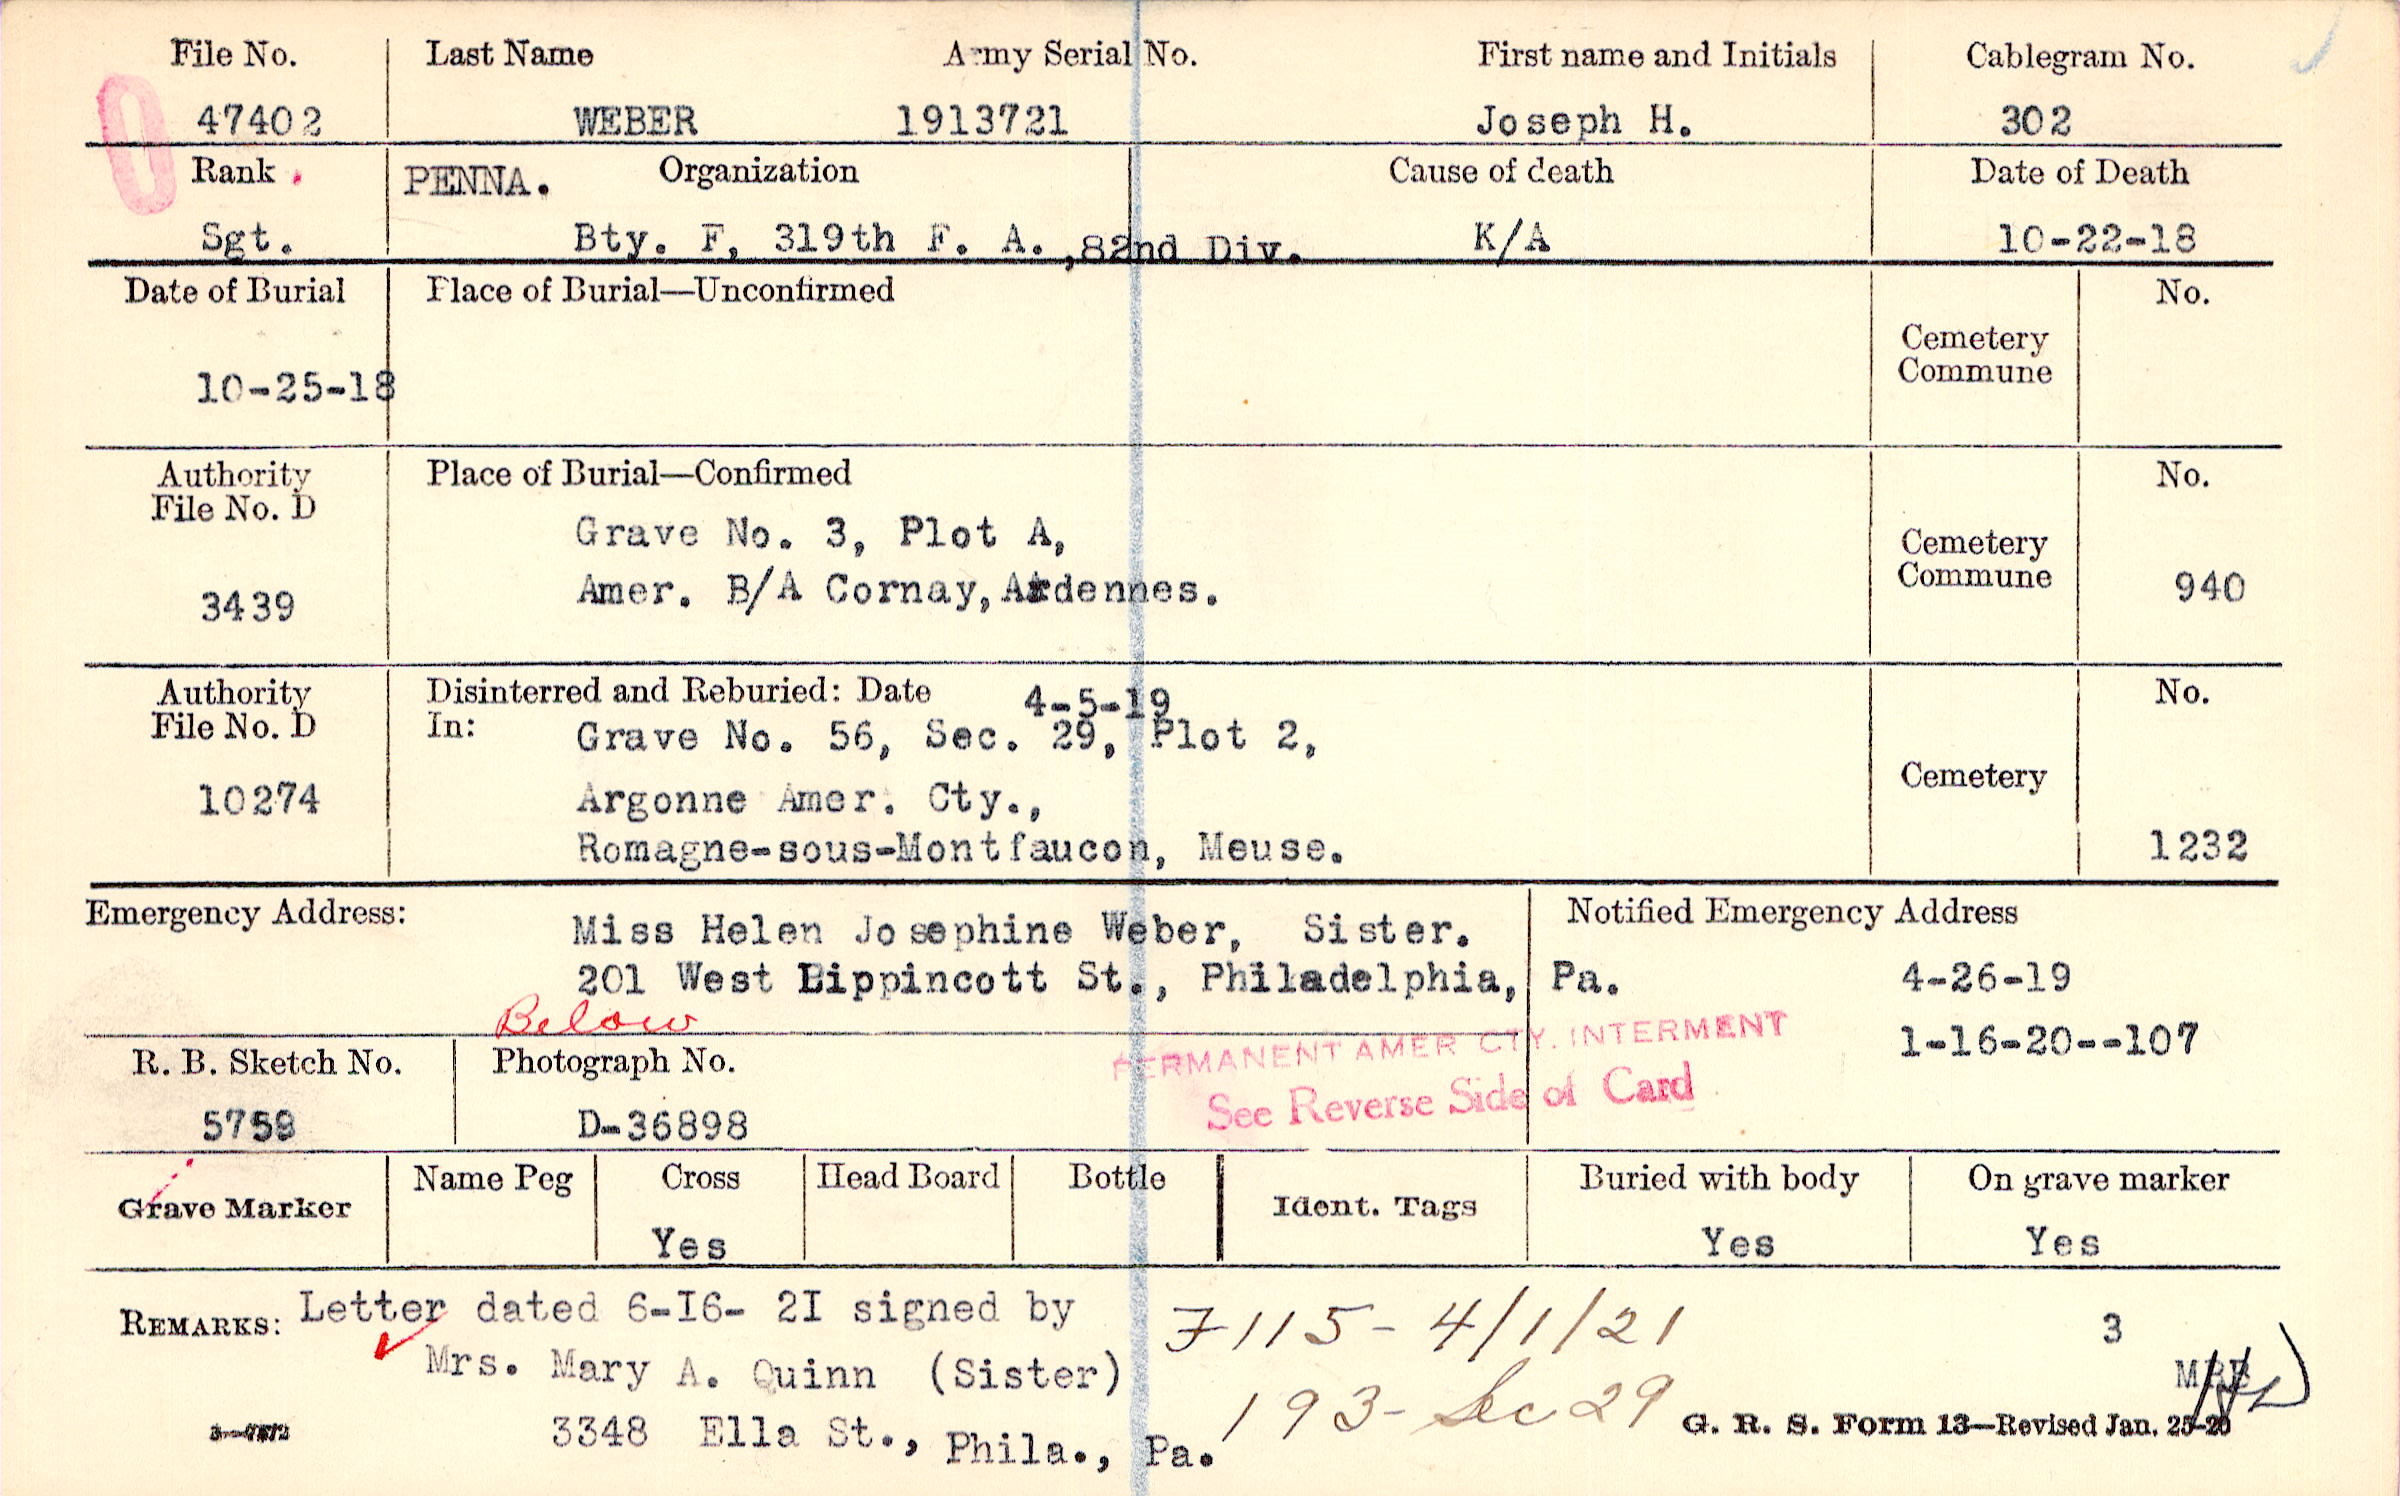 File No. Last Name Army Serial No. First name and Initials Cablegram No.
47402 WEBER 1913721 Joseph H. 302
Rank PENNA. Organization Cause of death Date of Death
Sgt. Bty. F, 319th F. A. ,82nd Div. K/A 10-22-18
Date of Burial Place of Burial—Unconfirmed No.
Cemetery
Commune
10-25-18
Authority Place of Burial—Confirmed No.
File No. D
Grave No. 3, Plot A,
Cemetery
Commune
3439 Amer. B/A Cornay, Ardennes. 940
Authority Disinterred and Reburied: Date 4-5-19 No.
File No. D In: Grave No. 56, Sec. 29, Plot 2,
Cemetery
10274 Argonne Amer. Cty.,
Romagne-sous-Montfaucon, Meuse. 1232
Emergency Address: Miss Helen Josephine Weber, Sister. Notified Emergency Address
201 West Lippincott St., Philadelphia, Pa. 4-26-19
Below
PERMANENT AMER CTY. INTERMENT 1-16-20--107
R. B. Sketch No. Photograph No.
See Reverse Side of Card
5758 D-36898
Grave Marker Name Peg Cross Head Board Bottle Ident. Tags Buried with body On grave marker
Yes Yes Yes
REMARKS: Letter dated 6-I6- 2I signed by 7115- 4/1/21 3
Mrs. Mary A. Quinn (Sister)
193- Sec 29
3348 Ella St., Phila., Pa.
G. R. S. Form 13—Revised Jan. 25-20